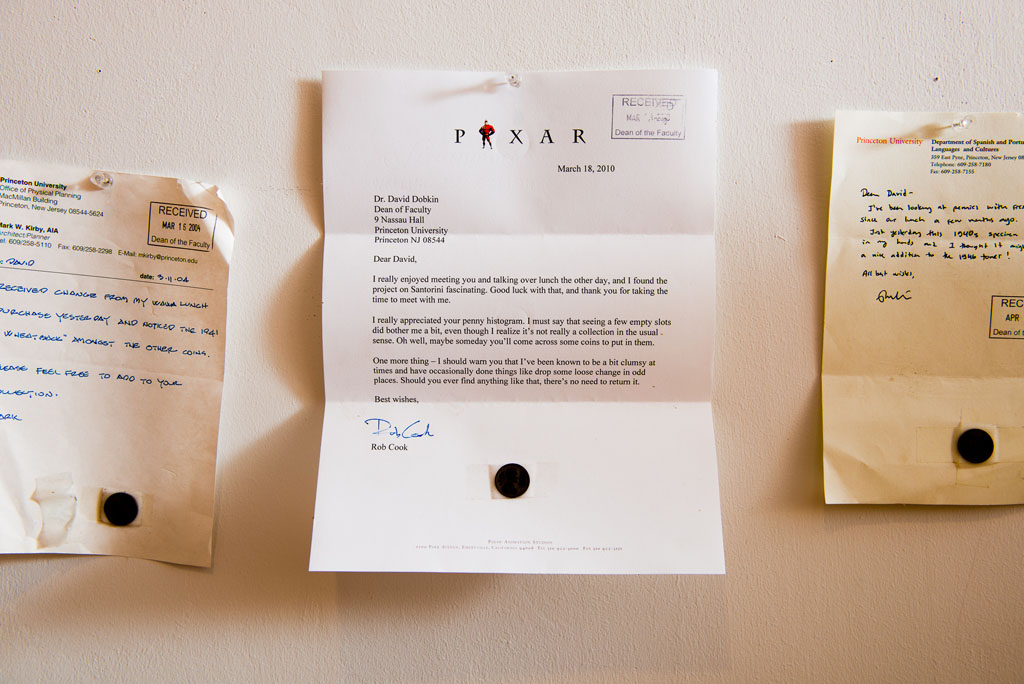 Princeton University
Office of Physical Planning
MacMillan Building
Princeton, New Jersey 08544-5624
Mark W. Kirby, AIA
Architect/Planner
Tel. 609/258-5110 Fax: 609/258-2298 E-Mail: mkirby@princeton.edu
RECEIVED
MAR 16 2004
Dean of the Faculty
DAVID
date: 3-11-04
RECEIVED CHANGE FROM MY WAWA LUNCH
PURCHASE YESTERDAY AND NOTICED THE 1941
"WHEATBACK" AMONGST THE OTHER COINS.
PLEASE FEEL FREE TO ADD TO YOUR
COLLECTION.
MARK
PIXAR
RECEIVED
MAR
Dean of the Faculty
March 18, 2010
Dr. David Dobkin
Dean of Faculty
9 Nassau Hall
Princeton University
Princeton NJ 08544
Dear David,
I really enjoyed meeting you and talking over lunch the other day, and I found the
project on Santorini fascinating. Good luck with that, and thank you for taking the
time to meet with me.
I really appreciated your penny histogram. I must say that seeing a few empty slots
did bother me a bit, even though I realize it's not really a collection in the usual
sense. Oh well, maybe someday you'll come across some coins to put in them.
One more thing – I should warn you that I've been known to be a bit clumsy at
times and have occasionally done things like drop some loose change in odd
places. Should you ever find anything like that, there's no need to return it.
Best wishes,
Rob Cook
Rob Cook
Pixar Animation Studios
Princeton University
Department of Spanish and Portu
Languages and Cultures
359 East Pyne, Princeton, New Jersey 08
Telephone: 609-258-7180
Fax: 609-258-7155
Dear David–
I've been looking at pennies with
since our lunch a few months ago.
Just yesterday this 1940s specimen
in my hands and I thought it
a nice addition to the 1946 tower!
All best wishes,
REC
APR
Dean of